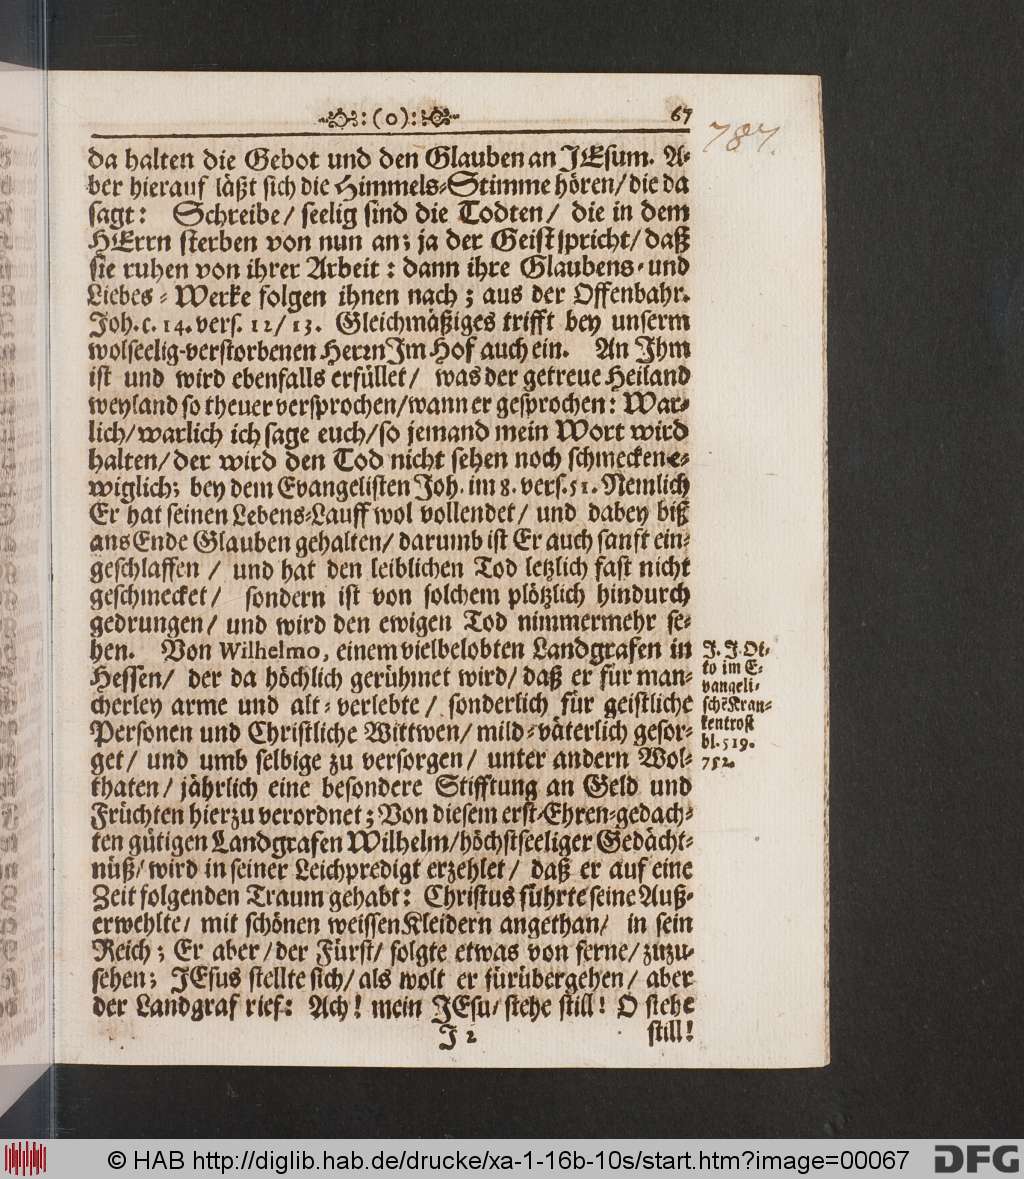 :(o): 67
787.
da halten die Gebot und den Glauben an JEsum. A-
ber hierauf läßt sich die Himmels-Stimme hören/ die da
sagt: Schreibe/ seelig sind die Todten/ die in dem
HErrn sterben von nun an; ja der Geist spricht/ daß
sie ruhen von ihrer Arbeit: dann ihre Glaubens- und
Liebes-Werke folgen ihnen nach; aus der Offenbahr.
Joh. c. 14. vers. 12/ 13. Gleichmäßiges trifft bey unserm
wolseelig-verstorbenen Herrn Im Hof auch ein. An Ihm
ist und wird ebenfalls erfüllet/ was der getreue Heiland
weyland so theuer versprochen/ wann er gesprochen: War-
lich/ warlich ich sage euch/ so jemand mein Wort wird
halten/ der wird den Tod nicht sehen noch schmecken e-
wiglich; bey dem Evangelisten Joh. im 8. vers. 51. Nemlich
Er hat seinen Lebens-Lauff wol vollendet/ und dabey biß
ans Ende Glauben gehalten/ darumb ist Er auch sanft ein-
geschlaffen/ und hat den leiblichen Tod letzlich fast nicht
geschmecket/ sondern ist von solchem plötzlich hindurch
gedrungen/ und wird den ewigen Tod nimmermehr se-
hen. Von Wilhelmo, einem vielbelobten Landgrafen in
Hessen/ der da höchlich gerühmet wird/ daß er für man-
cherley arme und alt-verlebte/ sonderlich für geistliche
Personen und Christliche Wittwen/ mild-väterlich gesor-
get/ und umb selbige zu versorgen/ unter andern Wol-
thaten/ jährlich eine besondere Stifftung an Geld und
Früchten hierzu verordnet; Von diesem erst-Ehren-gedach-
ten gütigen Landgrafen Wilhelm/ höchstseeliger Gedächt-
nüß/ wird in seiner Leichpredigt erzehlet/ daß er auf eine
Zeit folgenden Traum gehabt: Christus führte seine Auß-
erwehlte/ mit schönen weissen Kleidern angethan/ in sein
Reich; Er aber/ der Fürst/ folgte etwas von ferne/ zuzu-
sehen; JEsus stellte sich/ als wolt er fürübergehen/ aber
der Landgraf rief: Ach! mein JEsu/ stehe still! O stehe
J 2 still!
J. J. Ot-
to im E-
vangeli-
schẽ Kran-
kentrost
bl. 519.
752.
© HAB http://diglib.hab.de/drucke/xa-1-16b-10s/start.htm?image=00067 DFG